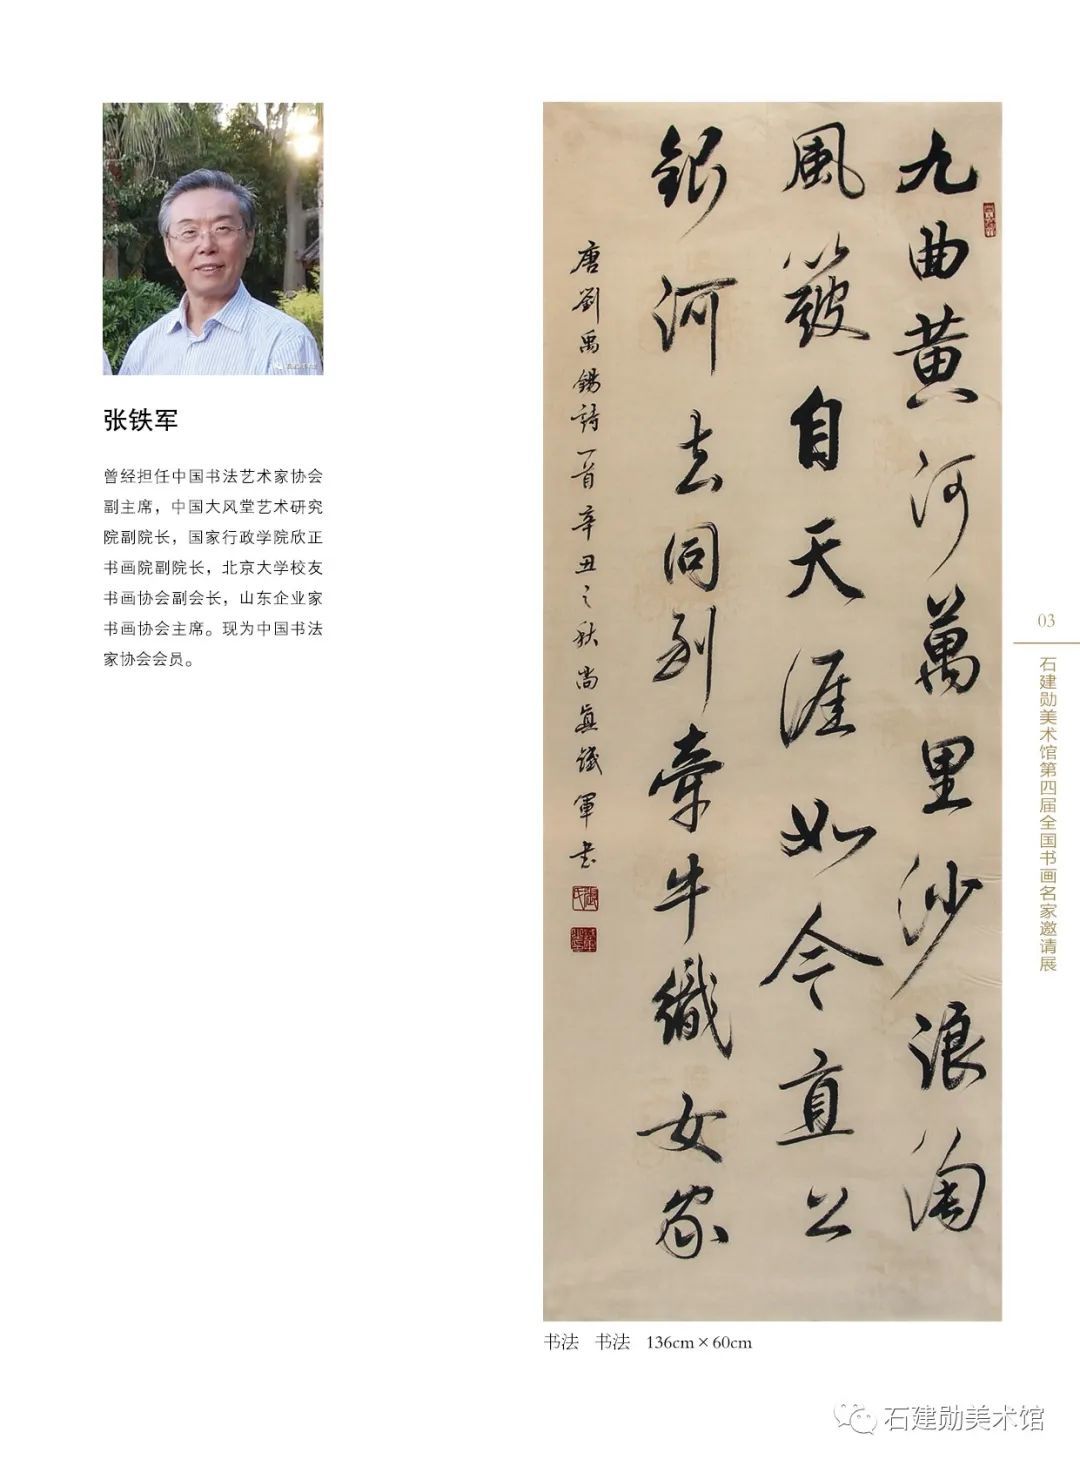 张铁军
曾经担任中国书法艺术家协会
副主席，中国大风堂艺术研究
院副院长，国家行政学院欣正
书画院副院长，北京大学校友
书画协会副会长，山东企业家
书画协会主席。现为中国书法
家协会会员。
九曲黄河萬里沙浪淘
風簸自天涯如今直上
銀河去同到牽牛織女家
唐劉禹錫詩一首辛丑之秋尚真鐵軍书
书法 书法 136cm×60cm
03
石建勋美术馆第四届全国书画名家邀请展
石建勋美术馆